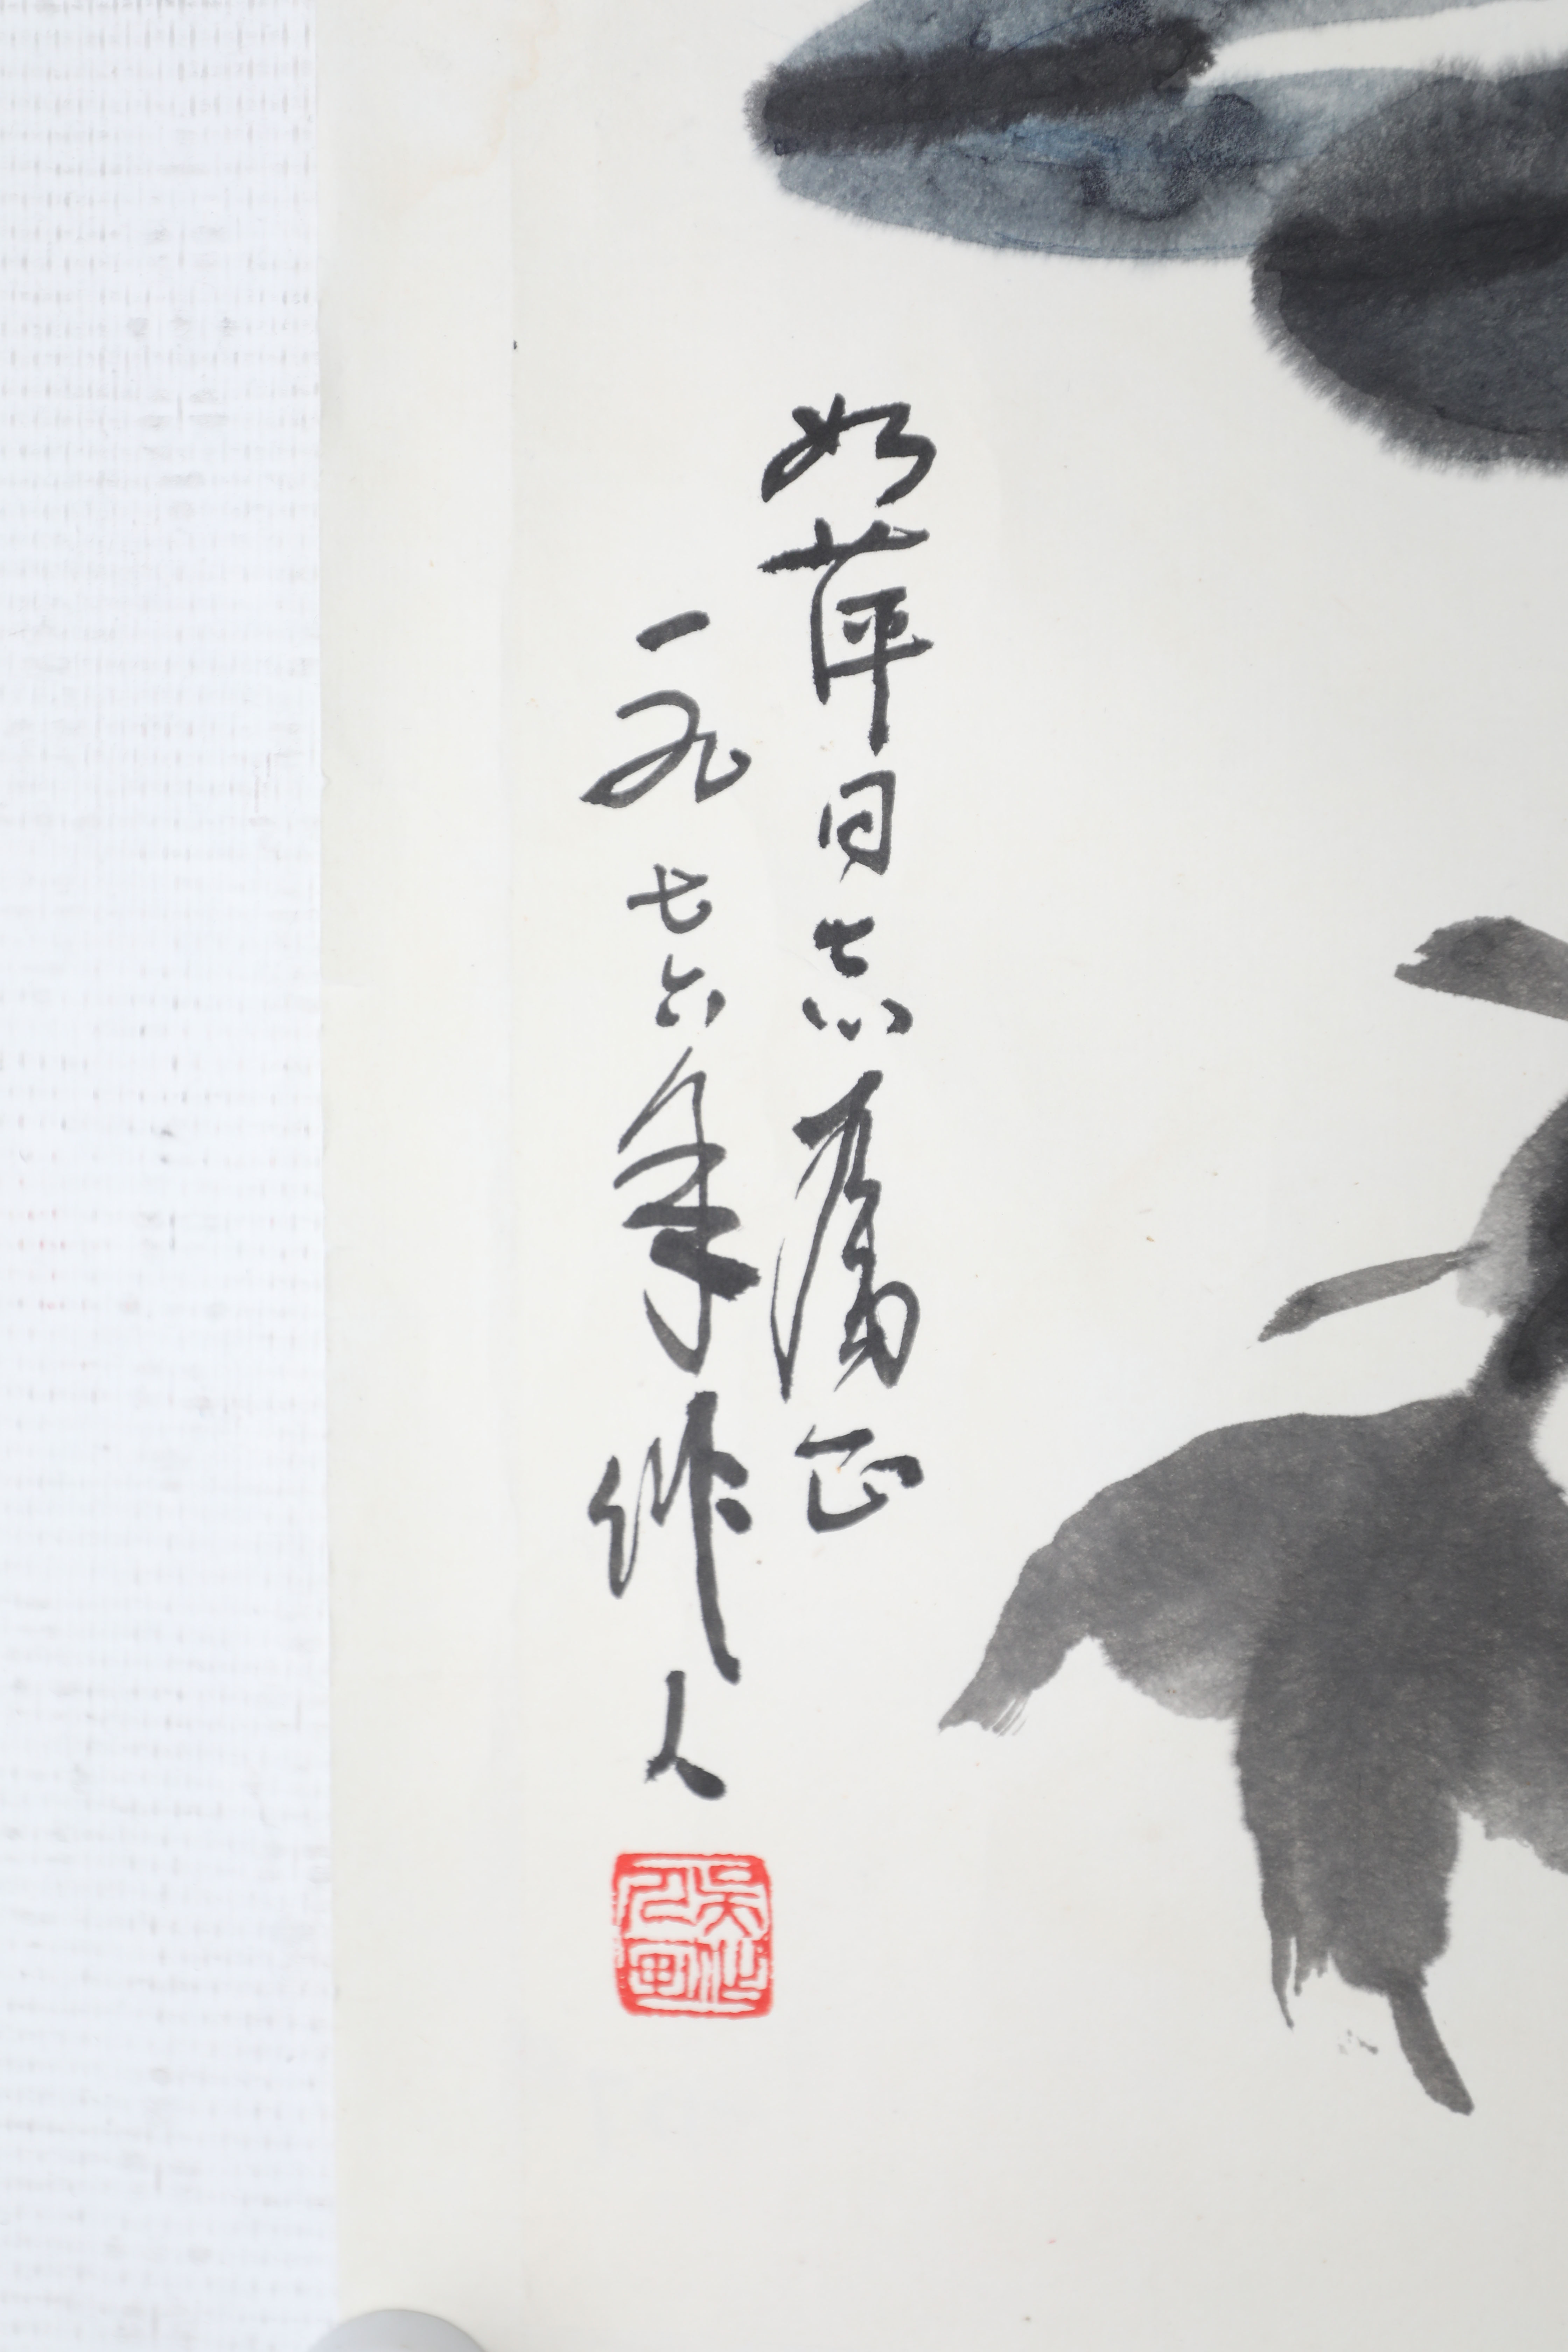 如萍同志属正
一九七六年作人
吴作
人画